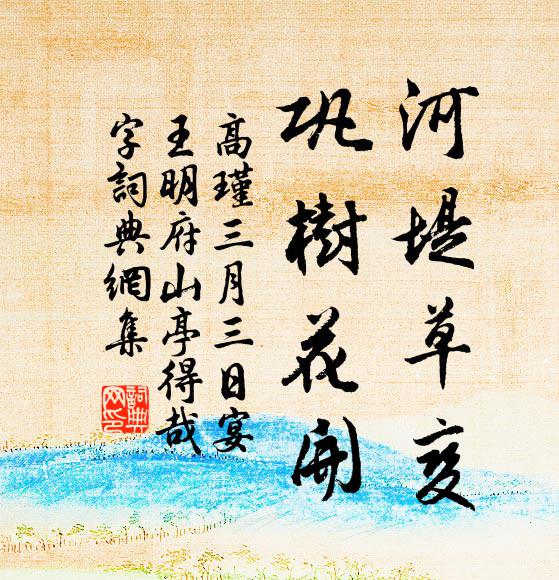 河堤草变
巩樹花開
高瑾三月三日宴
王明府山亭得哉
字詞典網集
詞典
网印